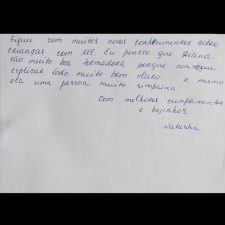 Fiquei com muitos novos conhecimentos sobre
crianças com NEE. Eu penso que Diana
são muito boa formadora porque consegue
explicar todo muito bem claro. e mesmo
ela uma pessoa muito simpatica.
Com melhores cumprimentos
e bejinhos
Natasha